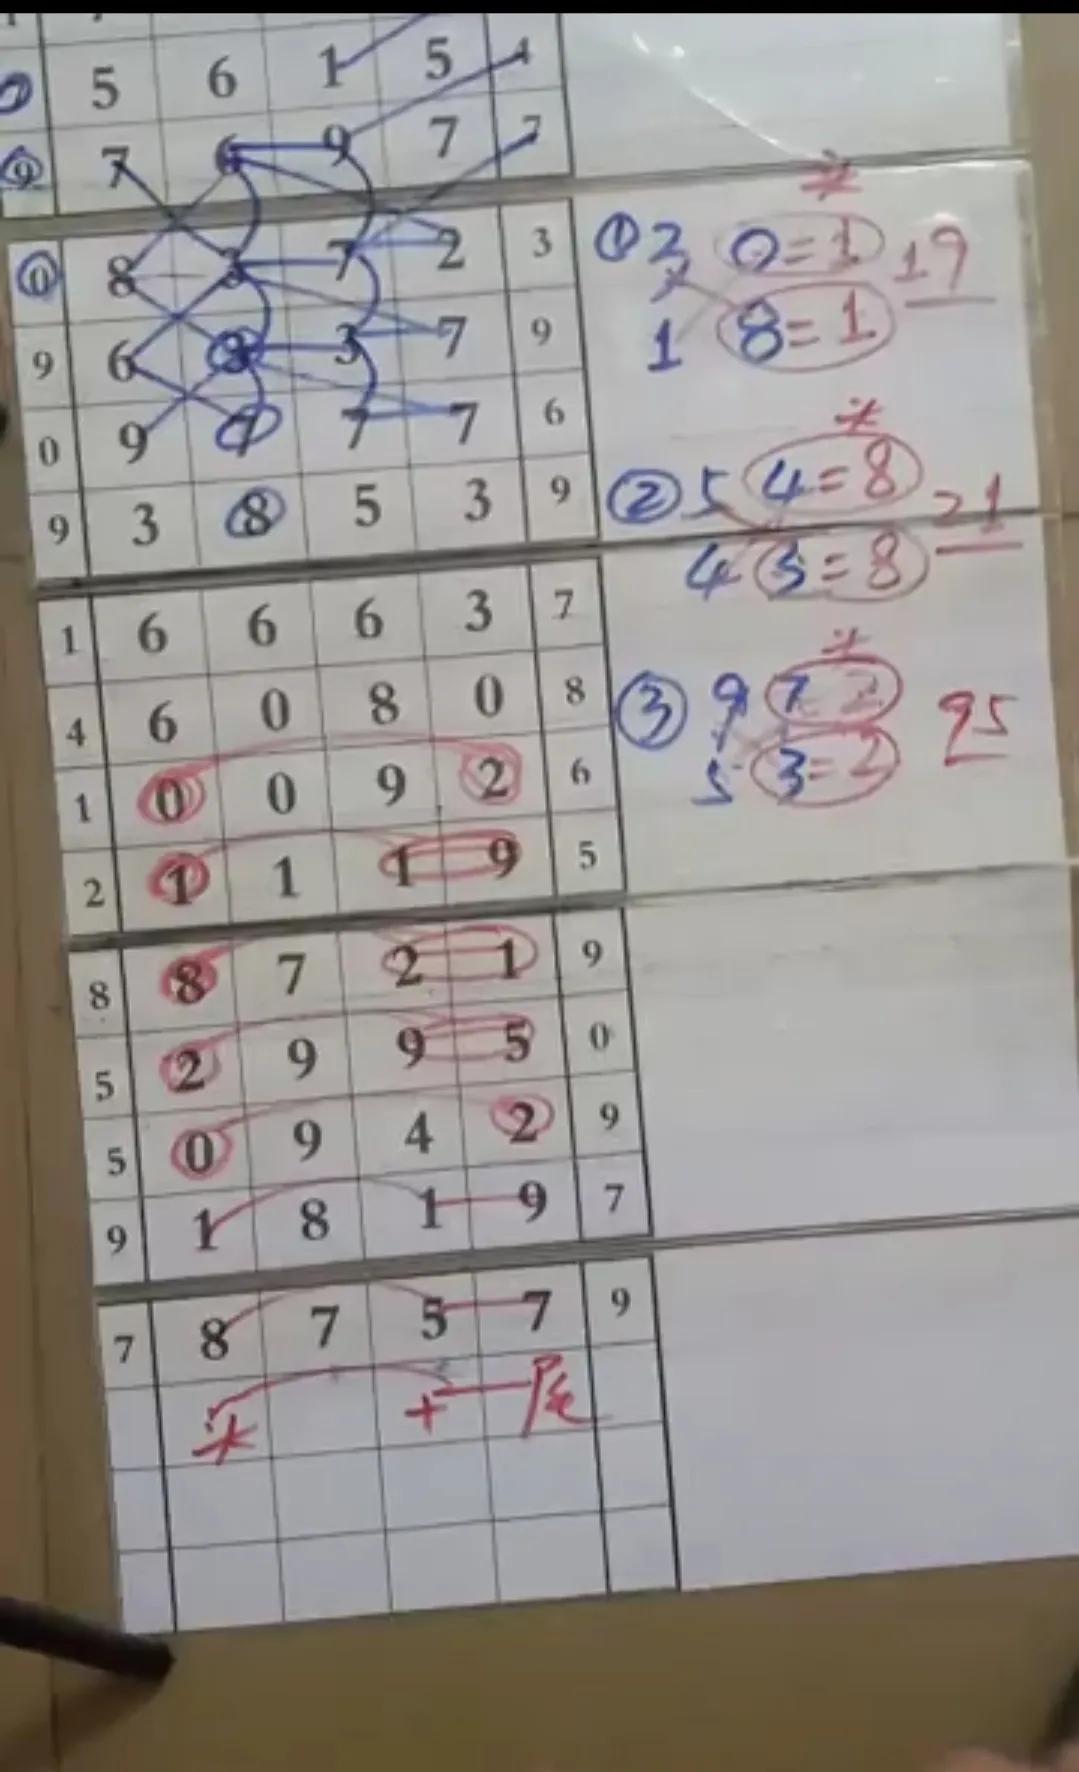 5 6 1 5 4
9 7 6 9 7 7
0 8 3 7 2 3
9 6 8 3 7 9
0 9 7 7 7 6
9 3 8 5 3 9
1 6 6 6 3 7
4 6 0 8 0 8
1 0 0 9 2 6
2 1 1 1 9 5
8 8 7 2 1 9
5 2 9 9 5 0
5 0 9 4 2 9
9 1 8 1 9 7
7 8 7 5 7 9
头 + 尾
头
① 2 0=1 19
1 8=1
头
② 5 4=8 21
4 5=8
头
③ 9 7 2 95
5 3=2